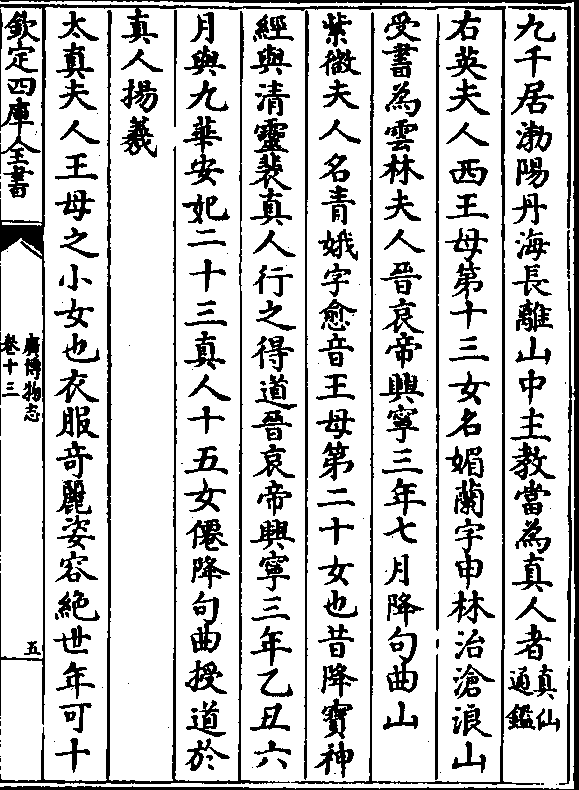 九千居渤陽丹海長離山中主教當為真人者真仙通鑑
右英夫人西王母第十三女名媚蘭字申林治滄浪山
受書為雲林夫人晉哀帝興寧三年七月降句曲山
紫微夫人名青娥字愈音王母第二十女也昔降寶神
經與清靈裴真人行之得道晉哀帝興寧三年乙丑六
月與九華安妃二十三真人十五女僊降句曲授道於
真人揚羲
太真夫人王母之小女也衣服奇麗姿容絶世年可十
欽定四庫全書
廣博物志
卷十三
五